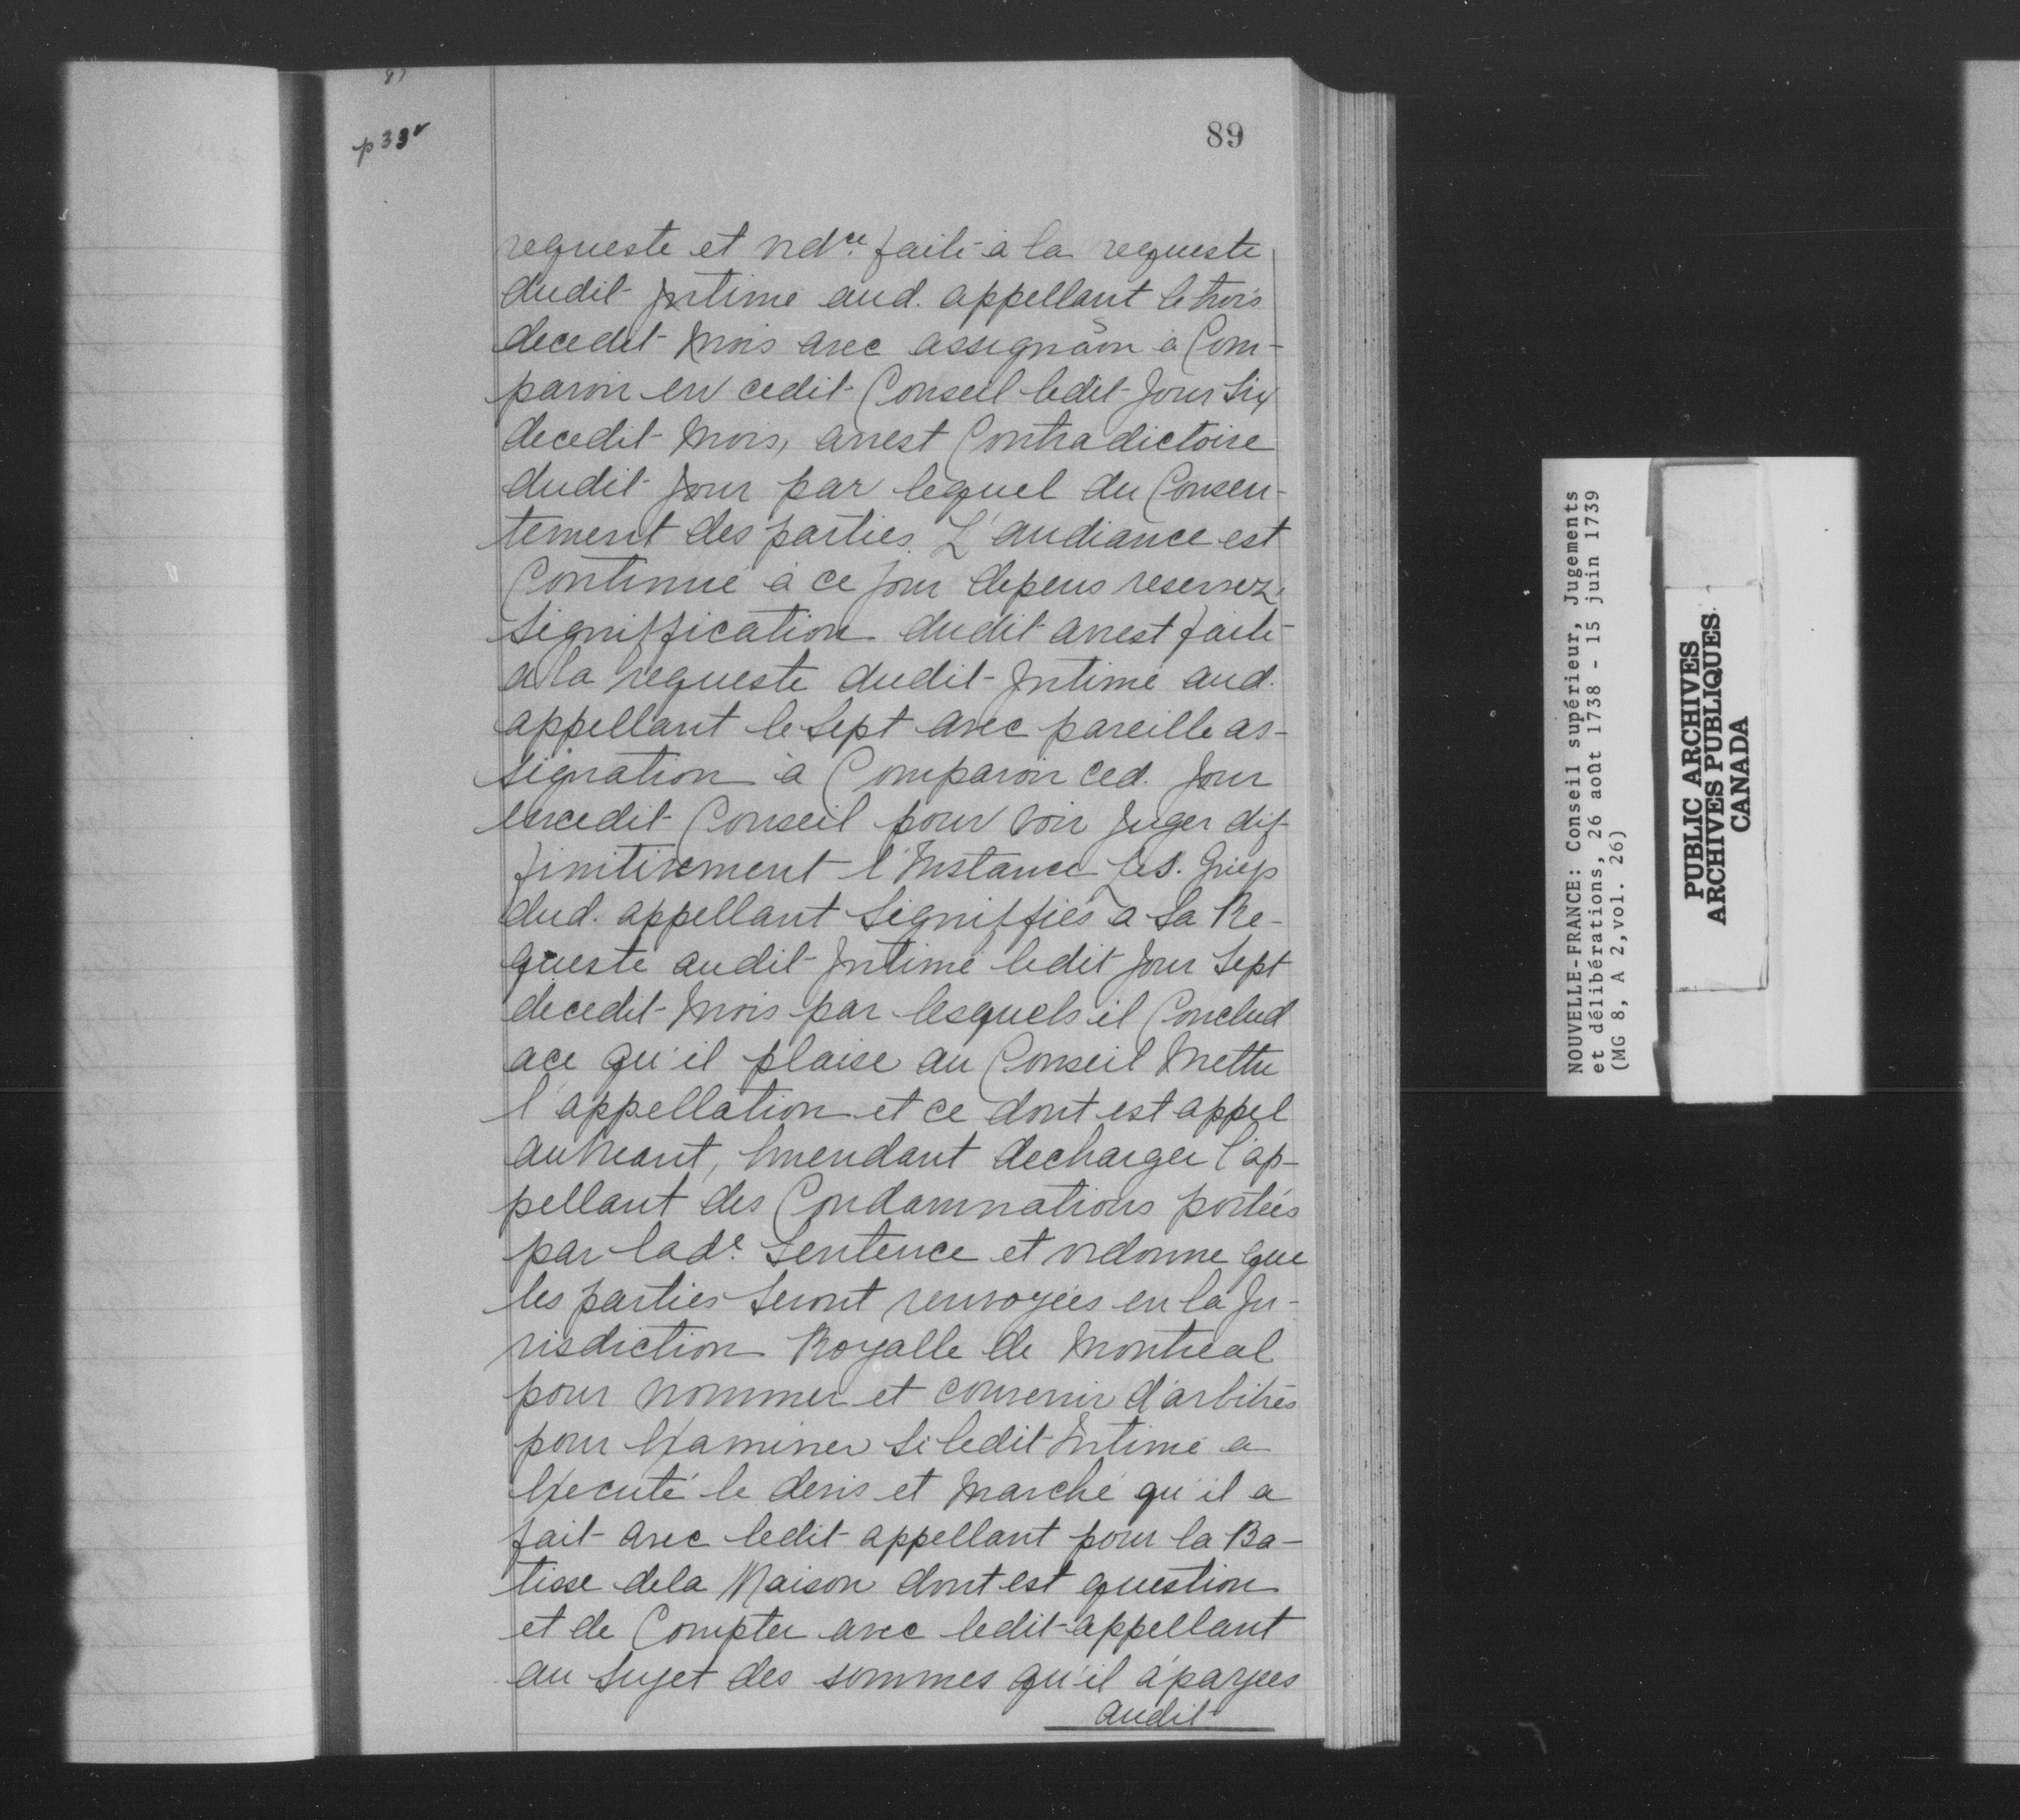 p 33v
89
requeste et ordce. faite à la requeste
dudit Jntimé aud. appellant le trois
decedit mois avec assignaõn à Com-
paroir en cedit Conseil ledit Jour Six
decedit mois, arrest Contradictoire
dudit Jour par lequel du Consen-
tement des parties L'audiance est
Continue à ce jour depens reservez
Signiffication dudit arrest faite
a la requeste dudit Jntimé aud.
appellant le Sept avec pareille as-
signation à Comparoir ced. Jour
encedit Conseil pour voir Juger dif-
finitivement l'Instance Les. Griefs
dud. appellant Signiffiés a Sa Re-
queste audit Jntimé ledit Jour Sept
decedit mois par lesquels il Conclud
ace qu'il plaise au Conseil Mettre
l'appellation et ce dont est appel
auNeant, Emendant decharger l'ap-
pellant des Condamnations portées
par lade. Sentence et ordonne que
les parties Seront renvoyées en la Ju-
risdiction Royalle de Montreal
pour nommer et convenir d'arbitres
pour Examiner Si ledit Intimé a
Executé le devis et Marché qu'il a
fait avec ledit appellant pour la Ba-
tisse dela Maison dont est question
et de Compter avec ledit appellant
au Sujet des sommes qu'il a payees
audit
NOUVELLE-FRANCE: Conseil supérieur, Jugements
et délibérations, 26 août 1738 - 15 juin 1739
(MG 8, A 2,vol. 26)
PUBLIC ARCHIVES
ARCHIVES PUBLIQUES
CANADA